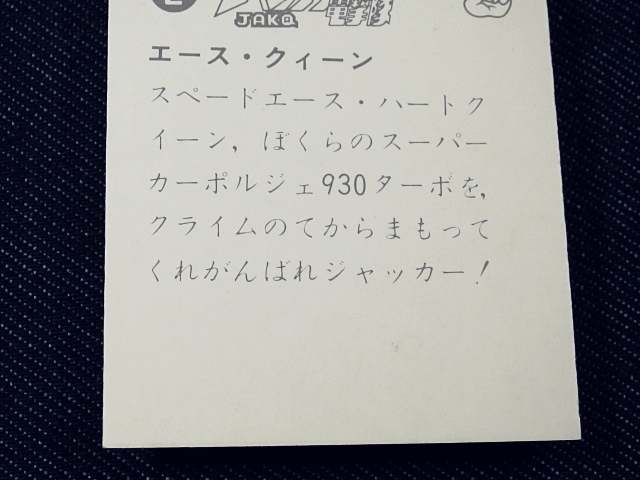 JAKQ電撃隊
エース・クィーン
スペードエース・ハートク
イーン，ぼくらのスーパー
カーポルジェ930ターボを，
クライムのてからまもって
くれがんばれジャッカー！